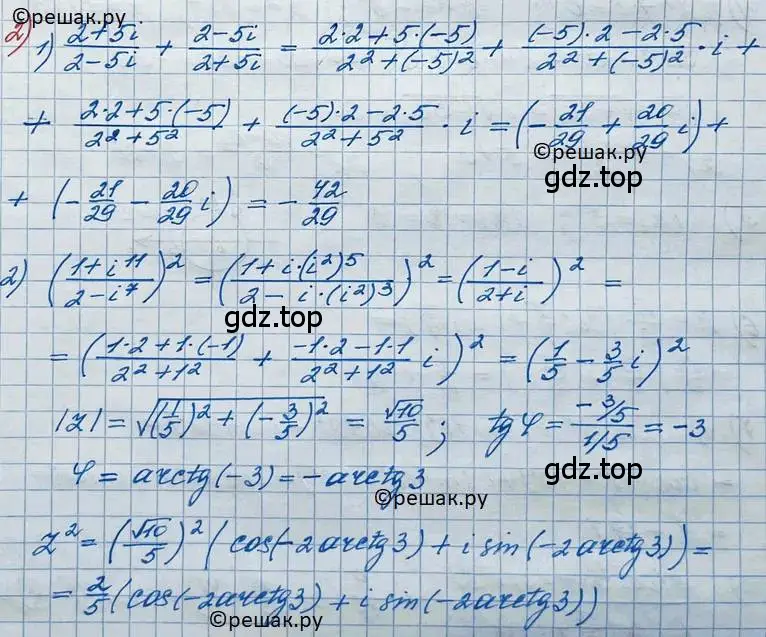 ©решак.ру
2) 1) (2+5i)/(2-5i) + (2-5i)/(2+5i) = (2·2+5·(-5))/(2²+(-5)²) + ((-5)·2-2·5)/(2²+(-5)²) · i +
+ (2·2+5·(-5))/(2²+5²) + ((-5)·2-2·5)/(2²+5²) · i = (-21/29 + 20/29 i) +
©решак.ру
gdz.top
+ (-21/29 - 20/29 i) = -42/29
2) ((1+i¹¹)/(2-i⁷))² = ((1+i·(i²)⁵)/(2-i·(i²)³))² = ((1-i)/(2+i))² =
gdz.top
= ((1·2+1·(-1))/(2²+1²) + (-1·2-1·1)/(2²+1²) i)² = (1/5 - 3/5 i)²
|z| = √((1/5)²+(-3/5)²) = √10/5; tgφ = (-3/5)/(1/5) = -3
gdz.top
φ = arctg(-3) = -arctg3
©решак.ру
z² = (√10/5)² (cos(-2arctg3) + i sin(-2arctg3)) =
= 2/5 (cos(-2arctg3) + i sin(-2arctg3))
©решак.ру